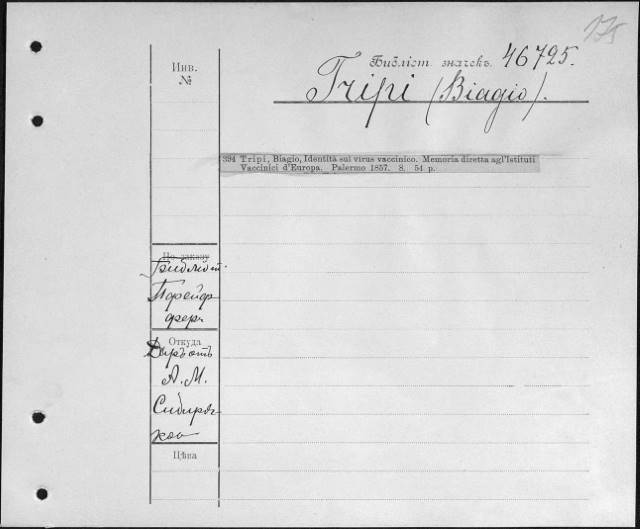 175
Инв.
№
Библіот. значекъ. 46725.
Tripi (Biagio).
394 Tripi, Biagio, Identità sul virus vaccinico. Memoria diretta agl'Istituti
Vaccinici d'Europa. Palermo 1857. 8. 54 p.
По заказу
Библіот.
Пфейф
фера
Откуда
Даръ отъ
А. М.
Сибиряк
кова
Цѣна